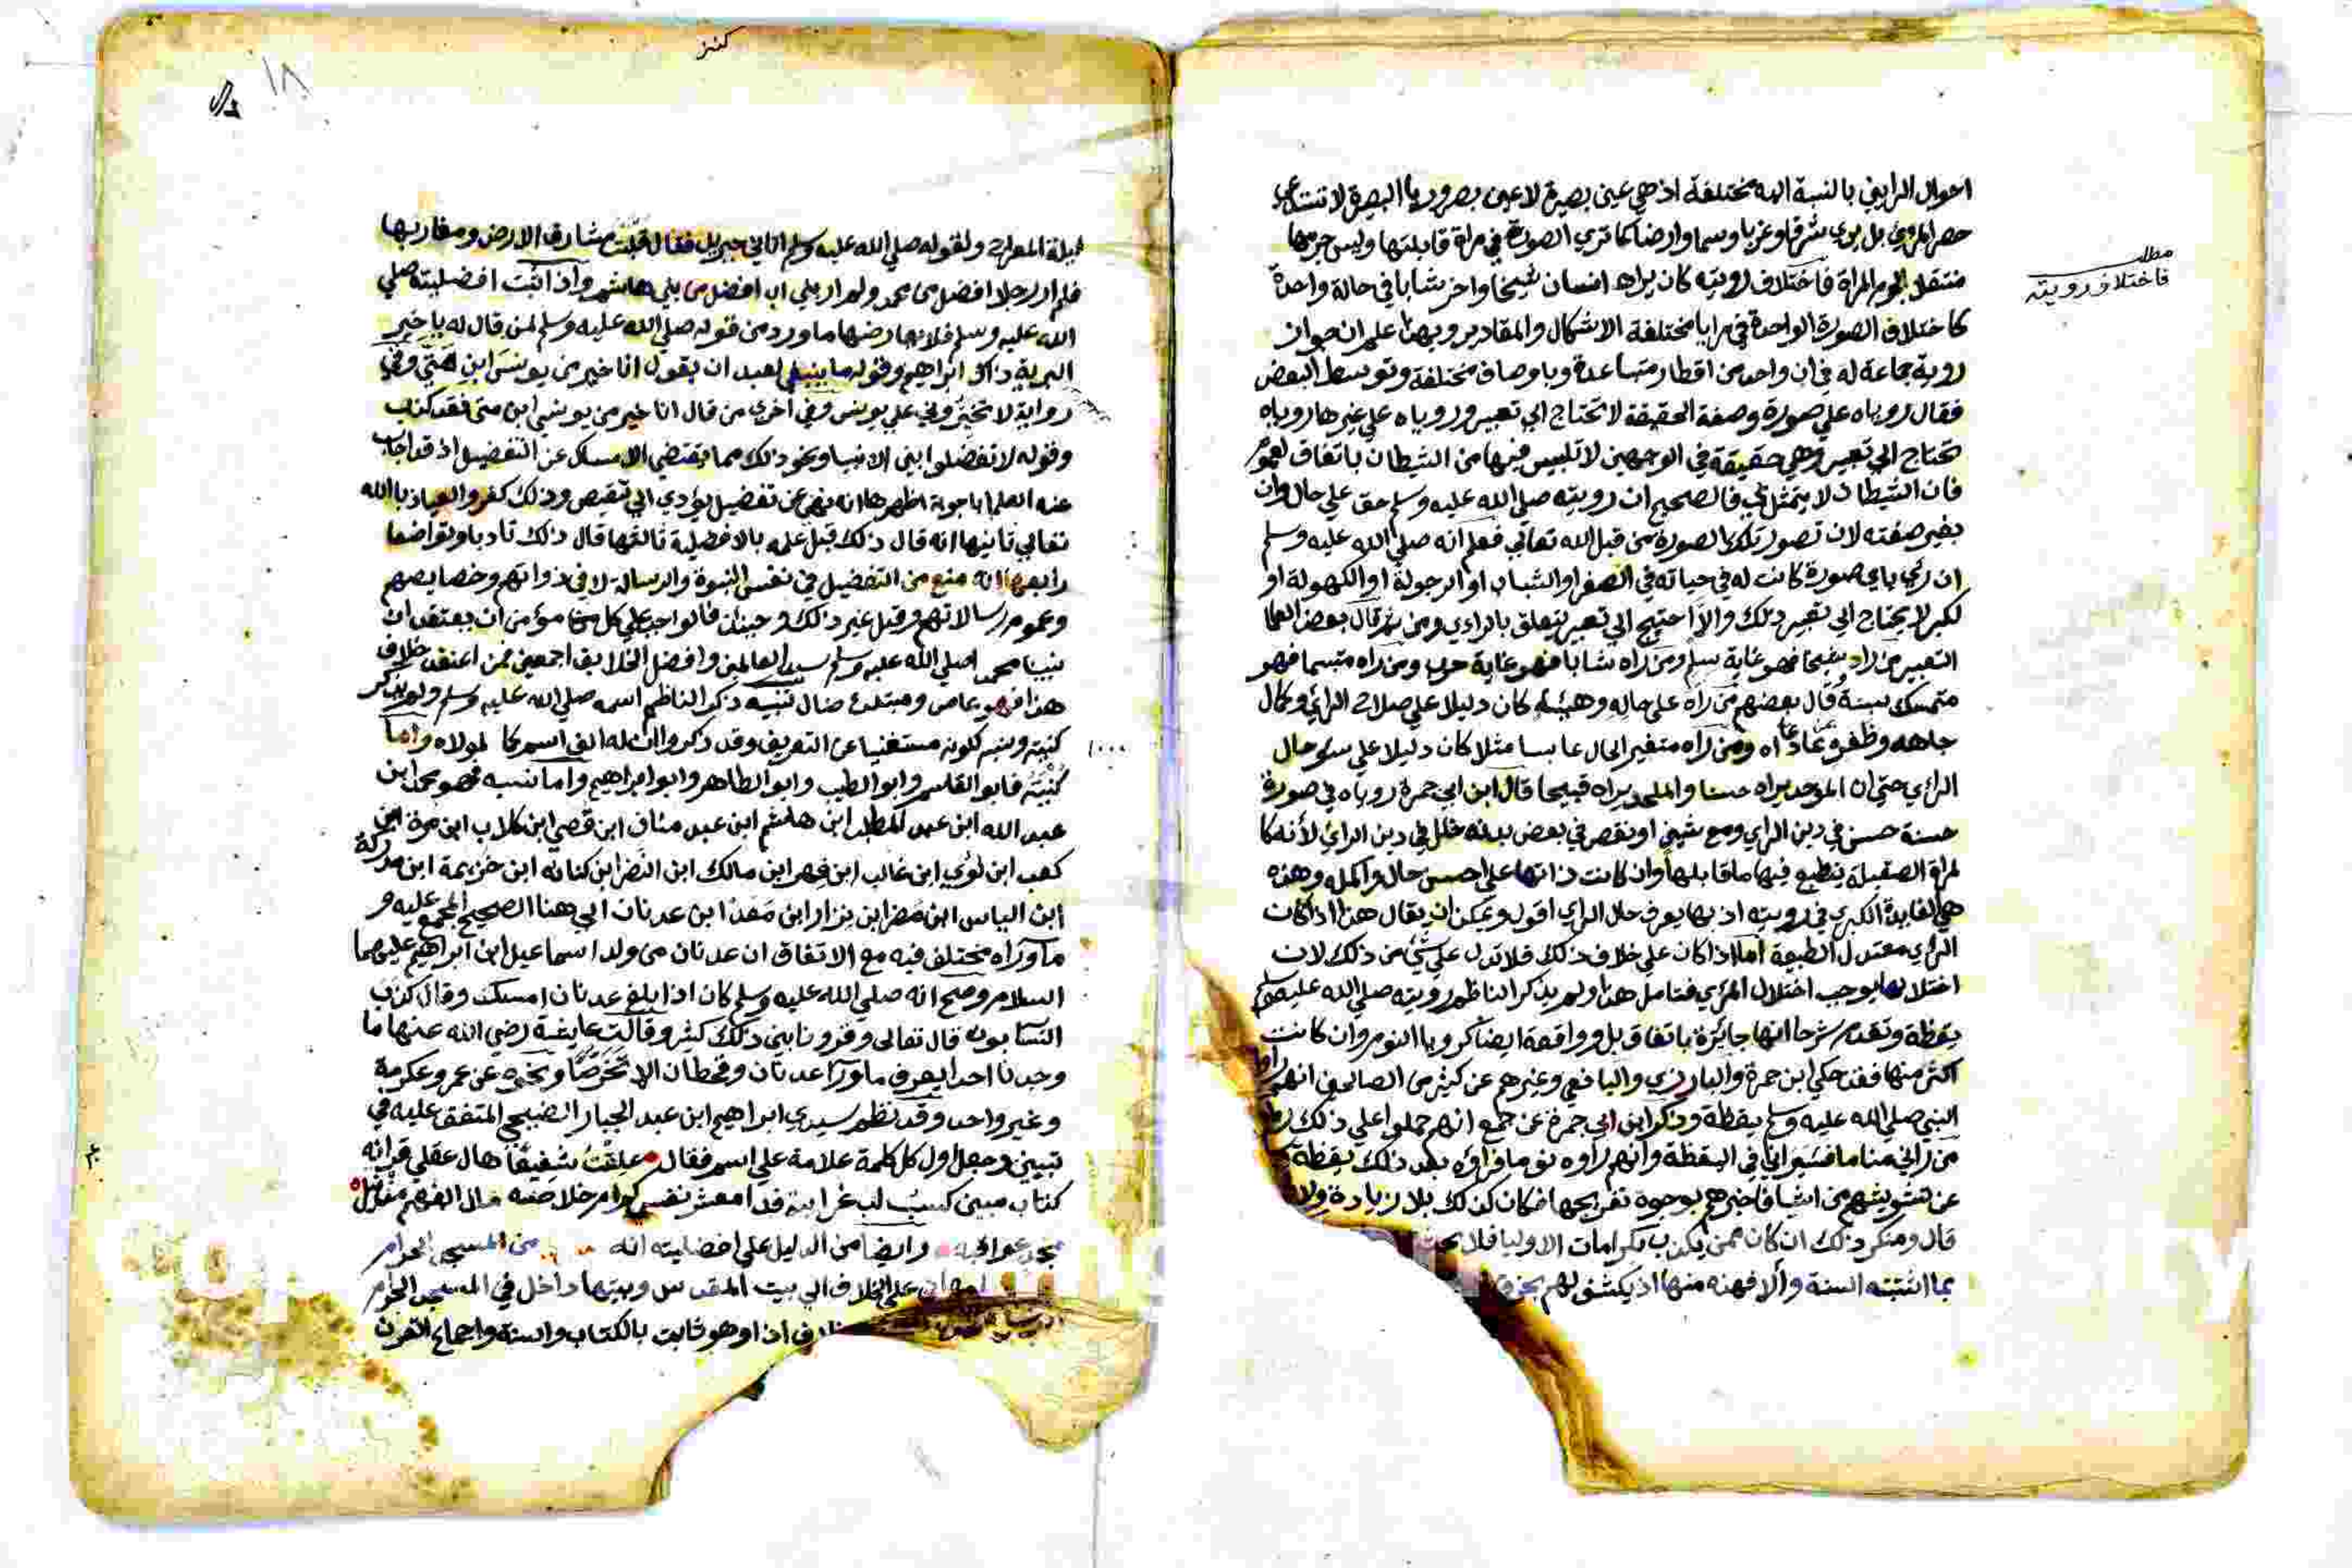 احوال الرايين بالنسبة اليه مختلفة اذ هي عين بصيرة لا عين بصر وريا البصيرة لا تستدعي
حصر المروي بل يري شرقا وغربا وسما وارضا كما تري الصورة في مراة قابلتها وليس جرمها
منتقل لجرم المراة فاختلاف رويته كان يراه انسان شيخا واخر شابا في حالة واحدة
كاختلاف الصورة الواحدة في مرايا مختلفة الاشكال والمقادير وبهذا علم ان جواز
روية جماعة له في ان واحد من اقطار متباعدة وباوصاف مختلفة وتوسط البعض
فقال روياه علي صورة وصفة الحقيقة لا تحتاج الي تعبير وروياه علي غيرها روياه
تحتاج الي تعبير وهي حقيقة في الوجهين لا تلبيس فيها من الشيطان باتفاق لعموم
فان الشيطان لا يتمثل بي فالصحيح ان رويته صلي الله عليه وسلم حق علي حال وان
بغير صفته لان تصور تلك الصورة من قبل الله تعالي فعلم انه صلي الله عليه وسلم
ان رئي باي صورة كانت له في حياته في الصغر او الشباب او الرجولة او الكهولة او
لكبر لا يحتاج الي تعبير ذلك والا احتيج الي تعبير يتعلق بالراءي ومن ثم قال بعض العلما
التعبير من راه شيخا فهو غاية سلم ومن راه شابا فهو غاية حرب ومن راه متبسما فهو
متمسك بسنة وقال بعضهم من راه علي حاله وهيئته كان دليلا علي صلاح الرائي وكمال
جاهه وظفره بمن عاداه ومن راه متغير الحال عابسا مثلا كان دليلا علي سو حال
الرائي حتي ان الموحد يراه حسنا والملحد يراه قبيحا قال ابن ابي جمرة روياه في صورة
حسنة حسن في دين الراي ومع شين او نقص في بعض بدنه خلل في دين الرائي لأنه كا
لمراة الصقيلة ينطبع فيها ما قابلها وان كانت ذاتها علي احسن حال واكمله وهذه
هي الفايدة الكبري في رويته اذ بها يعرف حال الراي اقول ويمكن ان يقال هذا اذا كان
الرائي معتدل الطبيعة اما اذا كان علي خلاف ذلك فلا تدل علي شئ من ذلك لان
اختلالها يوجب اختلال المرئي فتامل هذا ولم يذكر الناظم رويته صلي الله عليه وسلم
يقظة وتقدم شرحا انها جائزة باتفاق بل وواقعة ايضا كرويا النوم وان كانت
اكثر منها فقد حكي ابن جمرة والبارزي واليافعي وغيرهم عن كثير من الصالحين انهم راوا
النبي صلي الله عليه وسلم يقظة وذكر ابن ابي جمرة عن جمع انهم حملوا علي ذلك
من راني مناما فسيراني في اليقظة وانهم راوه نوما فراوه بعد ذلك يقظة
عن تشويشهم من اشيا فاخبرهم بوجوه تفريجها فكان كذلك بلا زيادة ولا
قال ومنكر ذلك ان كان ممن يكذب بكرامات الاوليا فلا بحث
بما اثبتته السنة والا فهذه منها اذ يكشف لهم بخرق
مطلب
فاختلاف رويته
كنز
١٨
ليلة المعراج ولقوله صلي الله عليه وسلم اتاني جبريل فقال قلبت مشارق الارض ومغاربها
فلم ار رجلا افضل من محمد ولم ار بني اب افضل من بني هاشم واذا ثبت افضليته صلي
الله عليه وسلم فلا يعارضها ما ورد من قوله صلي الله عليه وسلم لمن قال له يا خير
البرية ذاك ابراهيم وقوله ما ينبغي لعبد ان يقول انا خير من يونس ابن متي وفي
رواية لا تخيروني علي يونس وفي اخري من قال انا خير من يونس ابن متي فقد كذب
وقوله لا تفضلوا بني الانبيا ونحو ذلك مما يقتضي الامساك عن التفضيل اذ قد اجاب
عنه العلما باجوبة اظهرها انه نهي عن تفضيل يؤدي الي تنقيص وذلك كفر والعياذ بالله
تعالي ثانيها انه قال ذلك قبل علمه بالافضلية ثالثها قال ذلك تادبا وتواضعا
رابعها انه منع من التفضيل في نفس النبوة والرسالة لا في ذواتهم وخصايصهم
وعموم رسالاتهم وقيل غير ذلك وحينئذ فالواجب علي كل مؤمن ان يعتقد ان
نبينا محمد صلي الله عليه وسلم سيد العالمين وافضل الخلايق اجمعين فمن اعتقد خلاف
هذا فهو عاص ومبتدع ضال تنبيه ذكر الناظم اسمه صلي الله عليه وسلم ولم يذكر
كنيته ونسبه لكونه مستغنيا عن التعريف وقد ذكروا ان له الف اسم كما لمولاه واما
١٠٠٠
كنيته فابو القاسم وابو الطيب وابو الطاهر وابو ابراهيم واما نسبه فهو محمد ابن
عبد الله ابن عبد المطلب ابن هاشم ابن عبد مناف ابن قصي ابن كلاب ابن مرة ابن
كعب ابن لؤي ابن غالب ابن فهر ابن مالك ابن النضر ابن كنانه ابن خزيمة ابن مدركة
ابن الياس ابن مضر ابن نزار ابن معد ابن عدنان الي هنا الصحيح المجمع عليه و
ما وراه مختلف فيه مع الاتفاق ان عدنان من ولد اسماعيل ابن ابراهيم عليهما
السلام وصح انه صلي الله عليه وسلم كان اذا بلغ عدنان امسك وقال كذب
النسابون قال تعالي وقرونا بين ذلك كثيرا وقالت عايشة رضي الله عنها ما
وجدنا احدا يعرف ما ورا عدنان وقحطان الا تخرصا ونحوه عن عمر وعكرمة
وغير واحد وقد نظم سيدي ابراهيم ابن عبد الجبار الضبيجي المتفق عليه في
تبيين وجعل اول كل كلمة علامة علي اسم فقال علقت شفيقا هال عقلي قرانه
كتاب مبين كسب لب غرابيه فدا معشر نفس كرام خلاصه مدا الفهم مفضل
وايضا من الدليل علي افضليته انه من المسجد الحرام
علي الخلاف الي بيت المقدس وبيتها داخل في المسجد الحرام
اذا وهو ثابت بالكتاب والسنة واجماع القرن